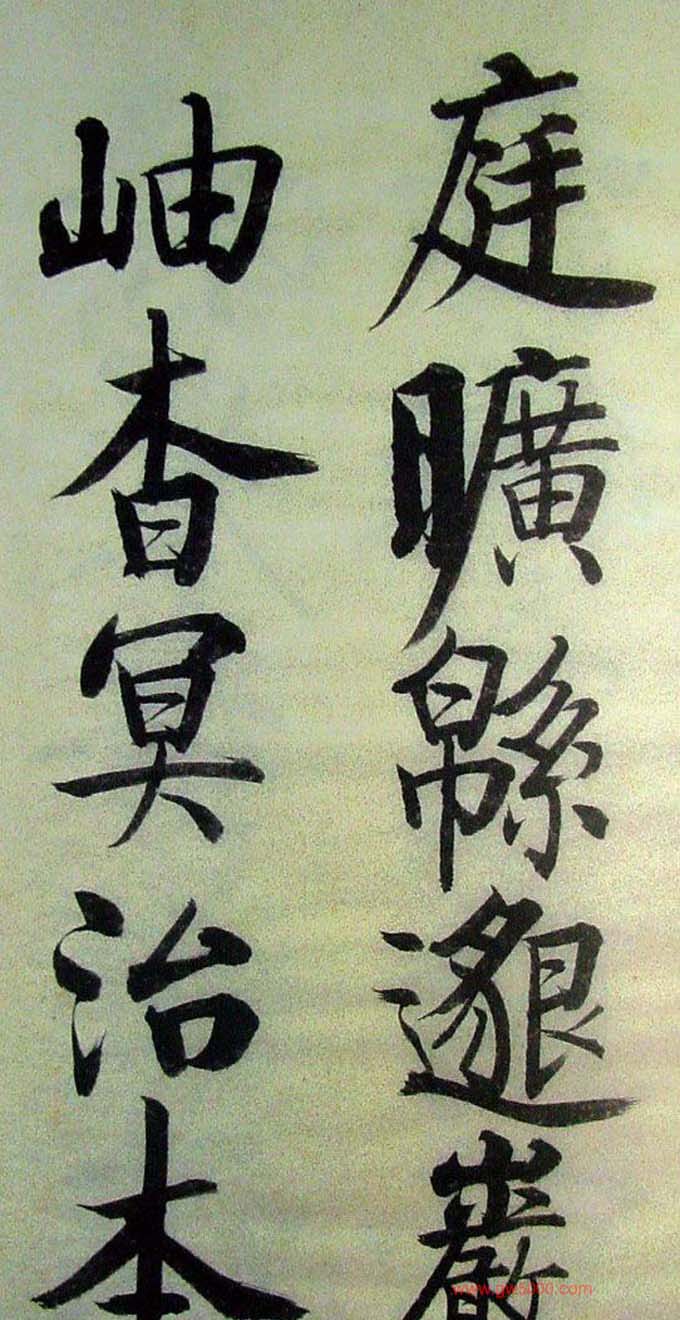 庭曠緜邈巖
岫杳冥治本
www.gw5000.com